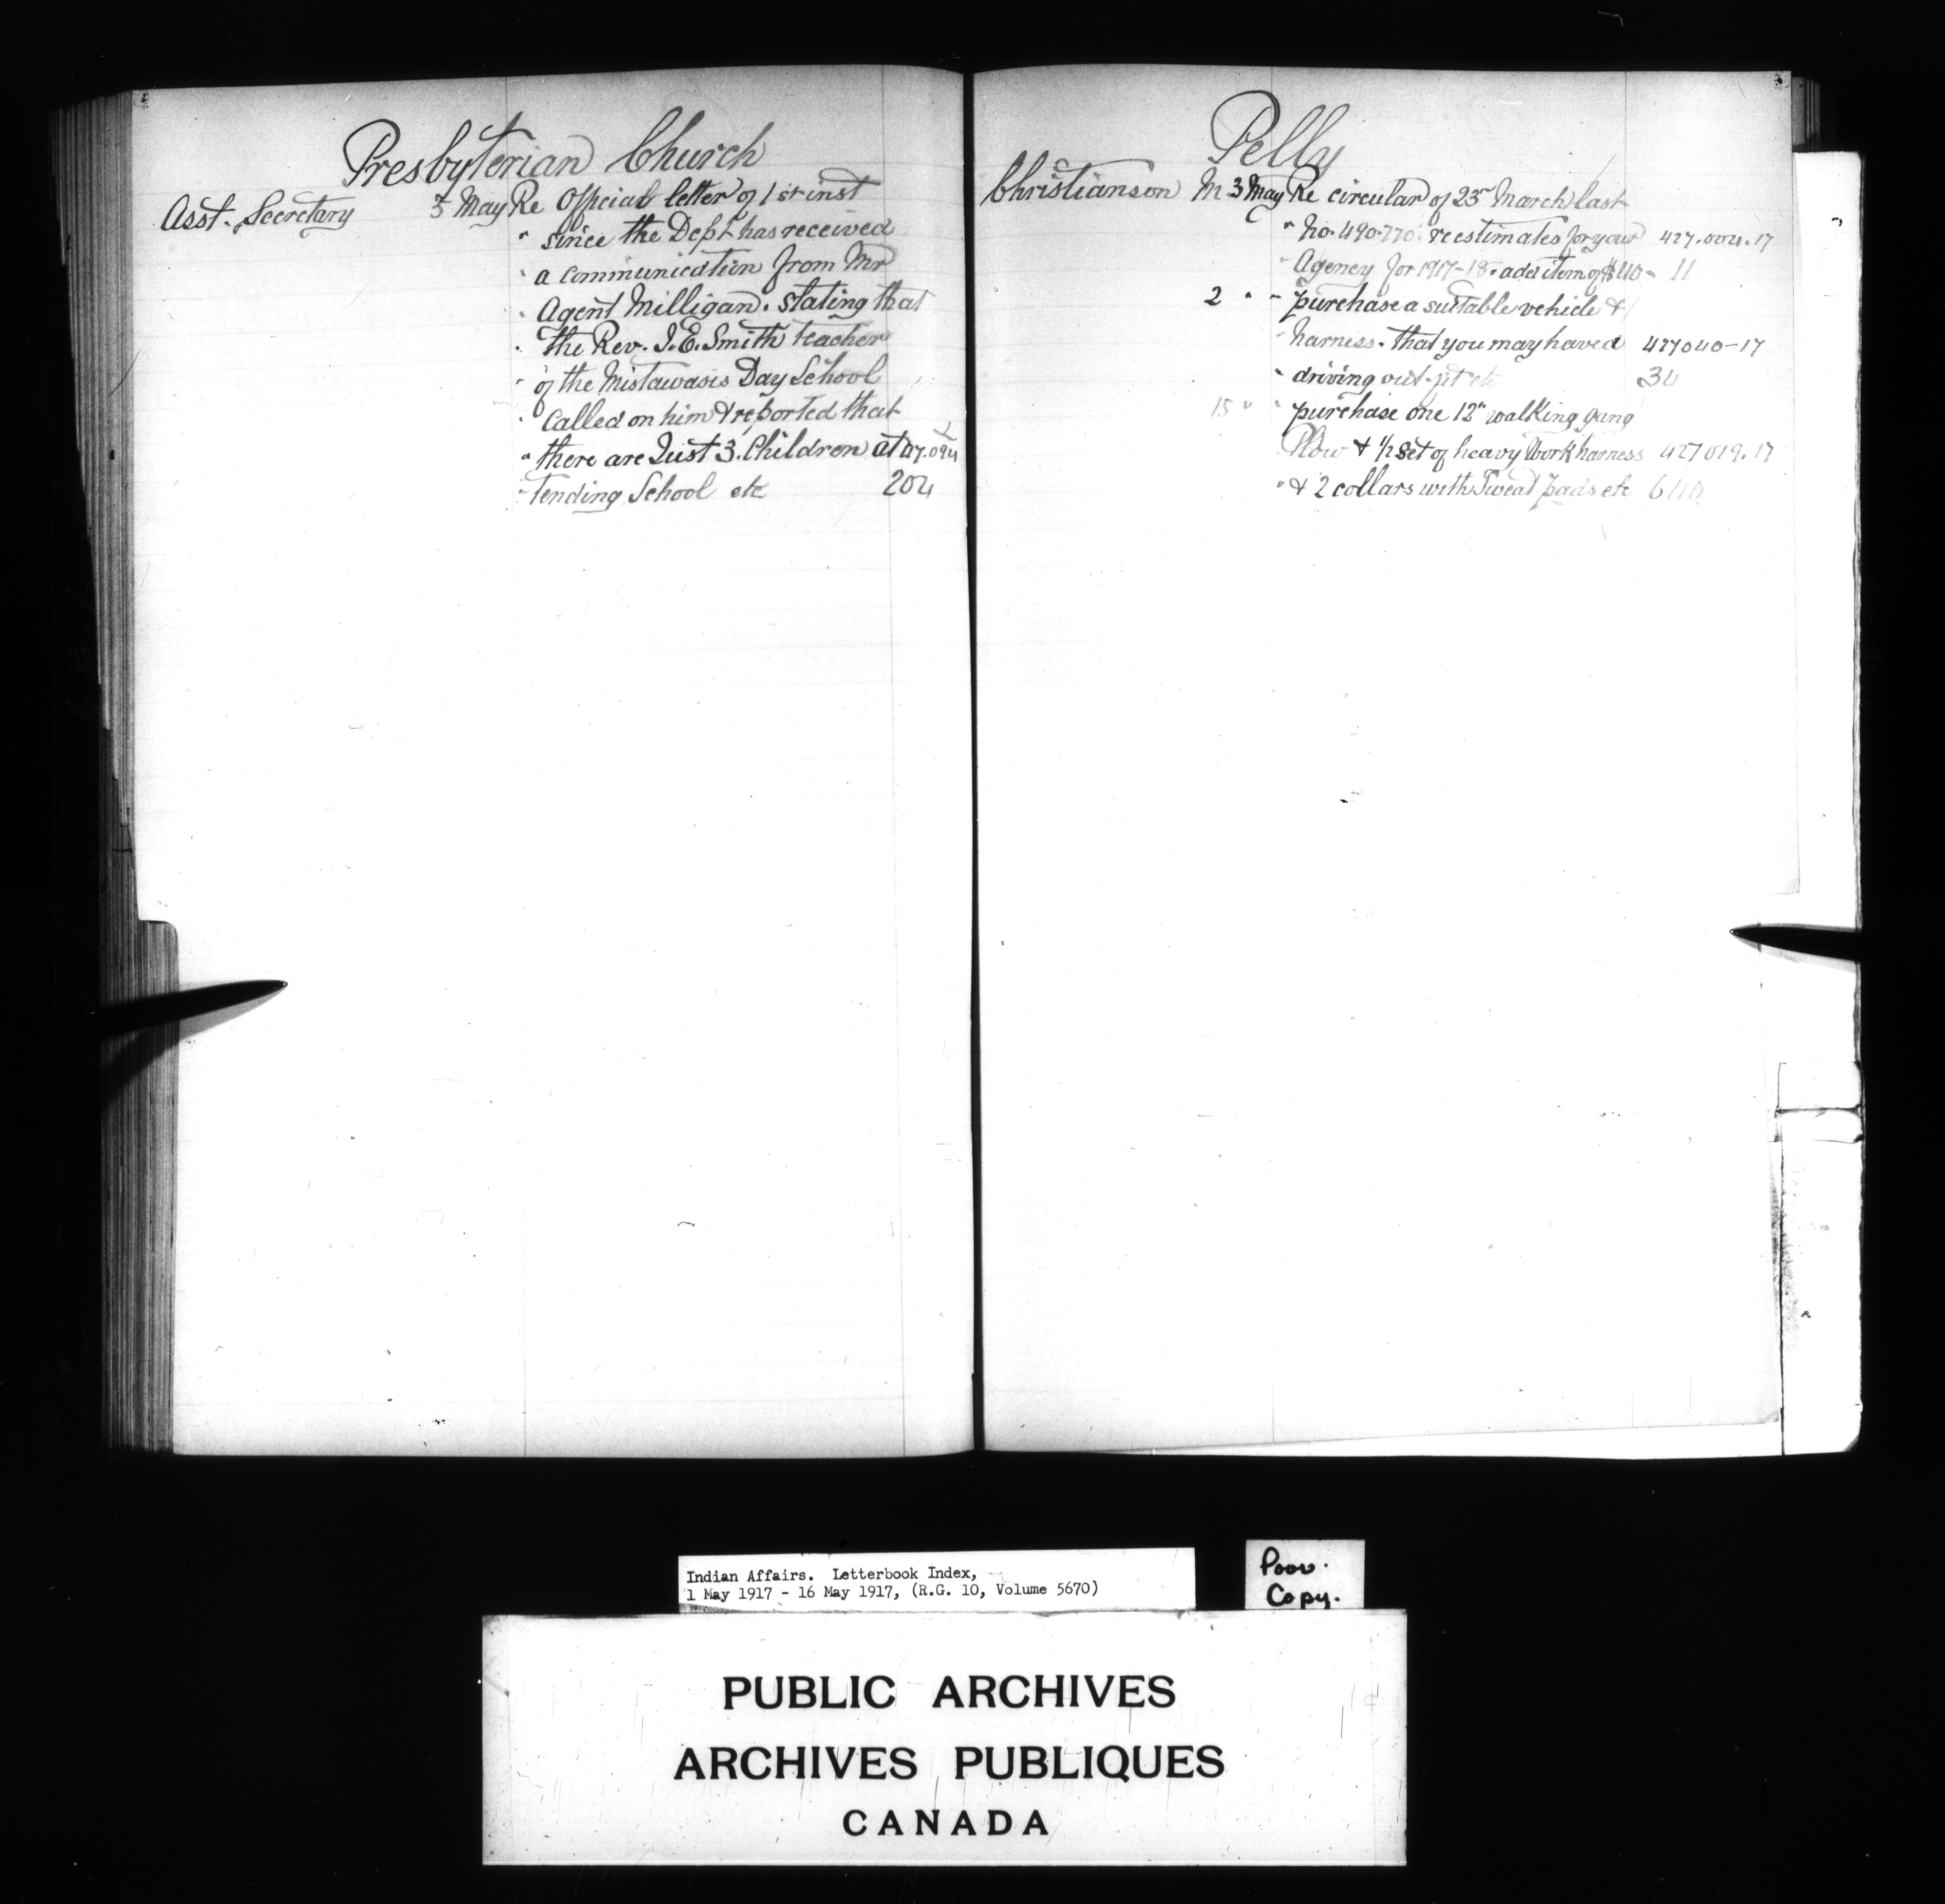 Presbyterian Church
Asst. Secretary 5 May Re Official letter of 1st inst
" since the Dept has received
" a communication from Mr
" Agent Milligan. stating that
" the Rev. J. E. Smith teacher
" of the Mistawasis Day School
" Called on him & reported that
" there are Just 3. Children at
" tending School etc 204
Pelly
Christianson M 3 May Re circular of 23rd March last
" No. 490.770. re estimates for your 427.004.17
" Agency for 1917-18. add item of $40- 11
2 " " purchase a suitable vehicle &
" harness. that you may have a 427040-17
" driving out-fit etc 34
15 " " purchase one 12" walking gang
Plow & 1/2 set of heavy Work harness 427019.17
" & 2 collars with Sweat pads etc
Indian Affairs. Letterbook Index,
1 May 1917 - 16 May 1917, (R.G. 10, Volume 5670)
Poor.
Copy.
PUBLIC ARCHIVES
ARCHIVES PUBLIQUES
CANADA